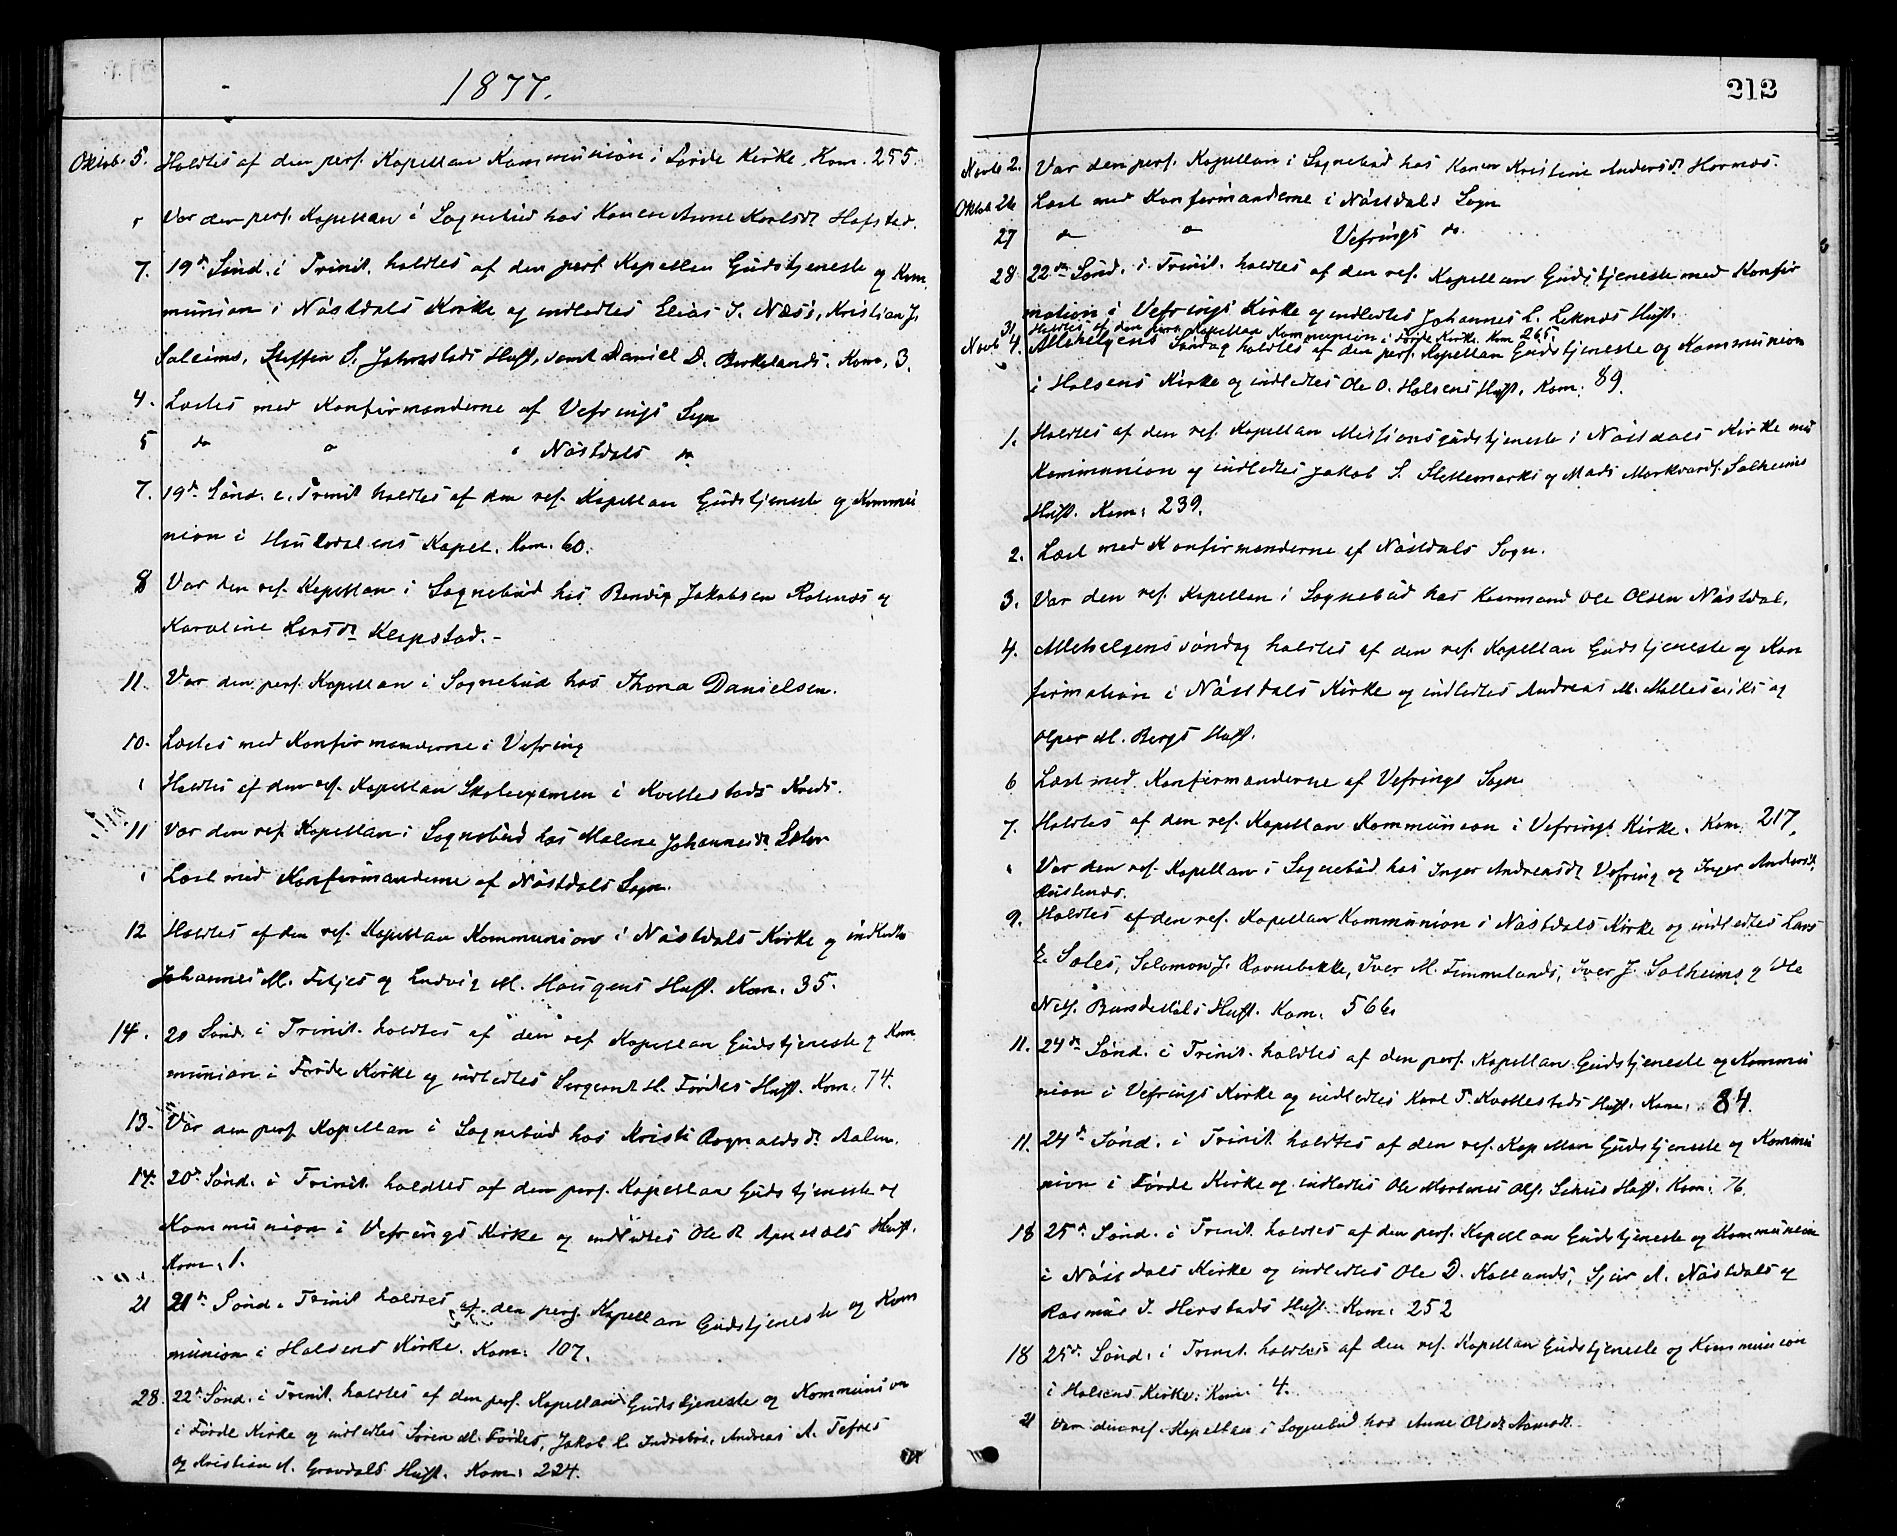 1877.
Oktob. 5. Holdtes af den pers. Kapellan Kommunion i Førde Kirke. Kom. 255.
" Var den pers. Kapellan i Sognebud hos Konen Anne Karlsd. Hafstad.
7. 19de Sønd. i Trinit. holdtes af den pers. Kapellan Gudstjeneste og Kom
munion i Nøstdals Kirke og indledtes Elias J. Næss, Kristian J.
Soleims, Steffen S. Jonstads Hust. samt Daniel D. Birkelands. Kom. 3.
4. Læstes med Konfirmanderne af Vefrings Sogn
5 do " " Nøstdals do
7. 19de Sønd. e. Trinit holdtes af den res. Kapellan Gudstjeneste og Kommu
nion i Haukedalens Kapel. Kom. 60.
8 Var den res. Kapellan i Sognebud hos Bendix Jakobsen og
Karoline Larsdr Klopstad. -
11. Var den pers. Kapellan i Sognebud hos Thona Danielsen.
10. Læstes med Konfirmanderne i Vefring
" Holdtes af den res. Kapellan Skoleexamen i Kvellestads Kreds.
11 Var den res. Kapellan i Sognebud hos Malene Johannesdr.
" Læst med Konfirmanderne af Nøstdals Sogn.
12 Holdtes af den res. Kapellan Kommunion i Nøstdals Kirke og indledtes
Johannes M. og Ludvig M. Haugens Hust. Kom. 35.
14. 20 Sønd. i Trinit. holdtes af "den" res Kapellan Gudstjeneste og Kom
munion i Førde Kirke og indledtes Sergeant H. Førdes Hust. Kom. 74.
13. Var den pers Kapellan i Sognebud hos Kristi Rognaldsdr.
14. 20de Sønd. i Trinit. holdtes af den pers. Kapellan Gudstjeneste og
Kommunion i Vefrings Kirke og indledtes Ole R. Hust.
Kom. 1.
21 21de Sønd. Trinit holdtes af den pers. Kapellan Gudstjeneste og Kom
munion i Holsens Kirke. Kom. 107.
28. 22de Sønd. i Trinit. holdtes af den pers. Kapellan Gudstjeneste og Kommunion
i Førde Kirke og indledtes Søren M. Førdes, Jakob L. Indrebøs, Andreas A. Tefres
og Kristian A. Gravdals Hust. Kom. 224.
212
Novb 2. Var den pers. Kapellan i Sognebud hos Konen Kristine Andersdr Hornæs.
Oktob 26 Læst med Konfirmanderne i Nøstdals Sogn
27 do do Vefrings do.
28 22de Sønd. i Trinit. holdtes af den res. Kapellan Gudstjeneste med Konfir
mation i Vefrings Kirke og indledtes Johannes L. Leknes Hust.
31. Holdtes af den pers. Kapellan Kommunion i Førde Kirke. Kom 265.
Novb 4. Allehelgens Søndag holdtes af den pers. Kapellan Gudstjeneste og Kommunion
i Holsens Kirke og indledtes Ole O. Holsens Hust. Kom. 89.
1. Holdtes af den res. Kapellan Missionsgudstjeneste i Nøstdals Kirke med
Kommunion og indledtes Jakob S. Slettemarks og Mads Markvards. Solheims
Hust. Kom. 239.
2. Læst med Konfirmanderne af Nøstdals Sogn.
3. Var den res. Kapellan i Sognebud hos Kaarmand Ole Olsen Nøstdal.
4. Allehelgenssøndag holdtes af den res. Kapellan Gudstjeneste og Kon
firmation i Nøstdals Kirke og indledtes Andreas M. og
M. Bergs Hust.
6 Læst med Konfirmanderne af Vefrings Sogn
7. Holdtes af den res. Kapellan Kommunion i Vefrings Kirke. Kom. 217.
" Var den res. Kapellan i Sognebud hos Inger Andreasdr Vefring og Inger Andersdr.

9. Holdtes af den res. Kapellan Kommunion i Nøstdals Kirke og indledtes Lars
E. Soles, Salomon J. Ravnebække, Iver M. Timmelands, Iver J. Solheims og Ole
Hust. Kom. 566.
11. 24de Sønd. i Trinit. holdtes af den pers. Kapellan Gudstjeneste og Kommu
nion i Vefrings Kirke og indledtes Karl T. Kvellestads Hust. Kom. 84.
11. 24de Sønd. i Trinit. holdtes af den res. Kapellan Gudstjeneste og Kommu
nion i Førde Kirke og indledtes Ole Martenus Ols. Hust. Kom. 76.
18 25de Sønd. i Trinit. holdtes af den pers. Kapellan Gudstjeneste og Kommunion
i Nøstdals Kirke og indledtes Ole D. Kallands, A. Nøstdals og
Rasmus J. Herstads Hust. Kom. 252
18 25de Sønd. i Trinit. holdtes af den res. Kapellan Gudstjeneste og Kommunion
i Holsens Kirke. Kom. 4.
21 Var den res. Kapellan i Sognebud hos Anne Olsdr